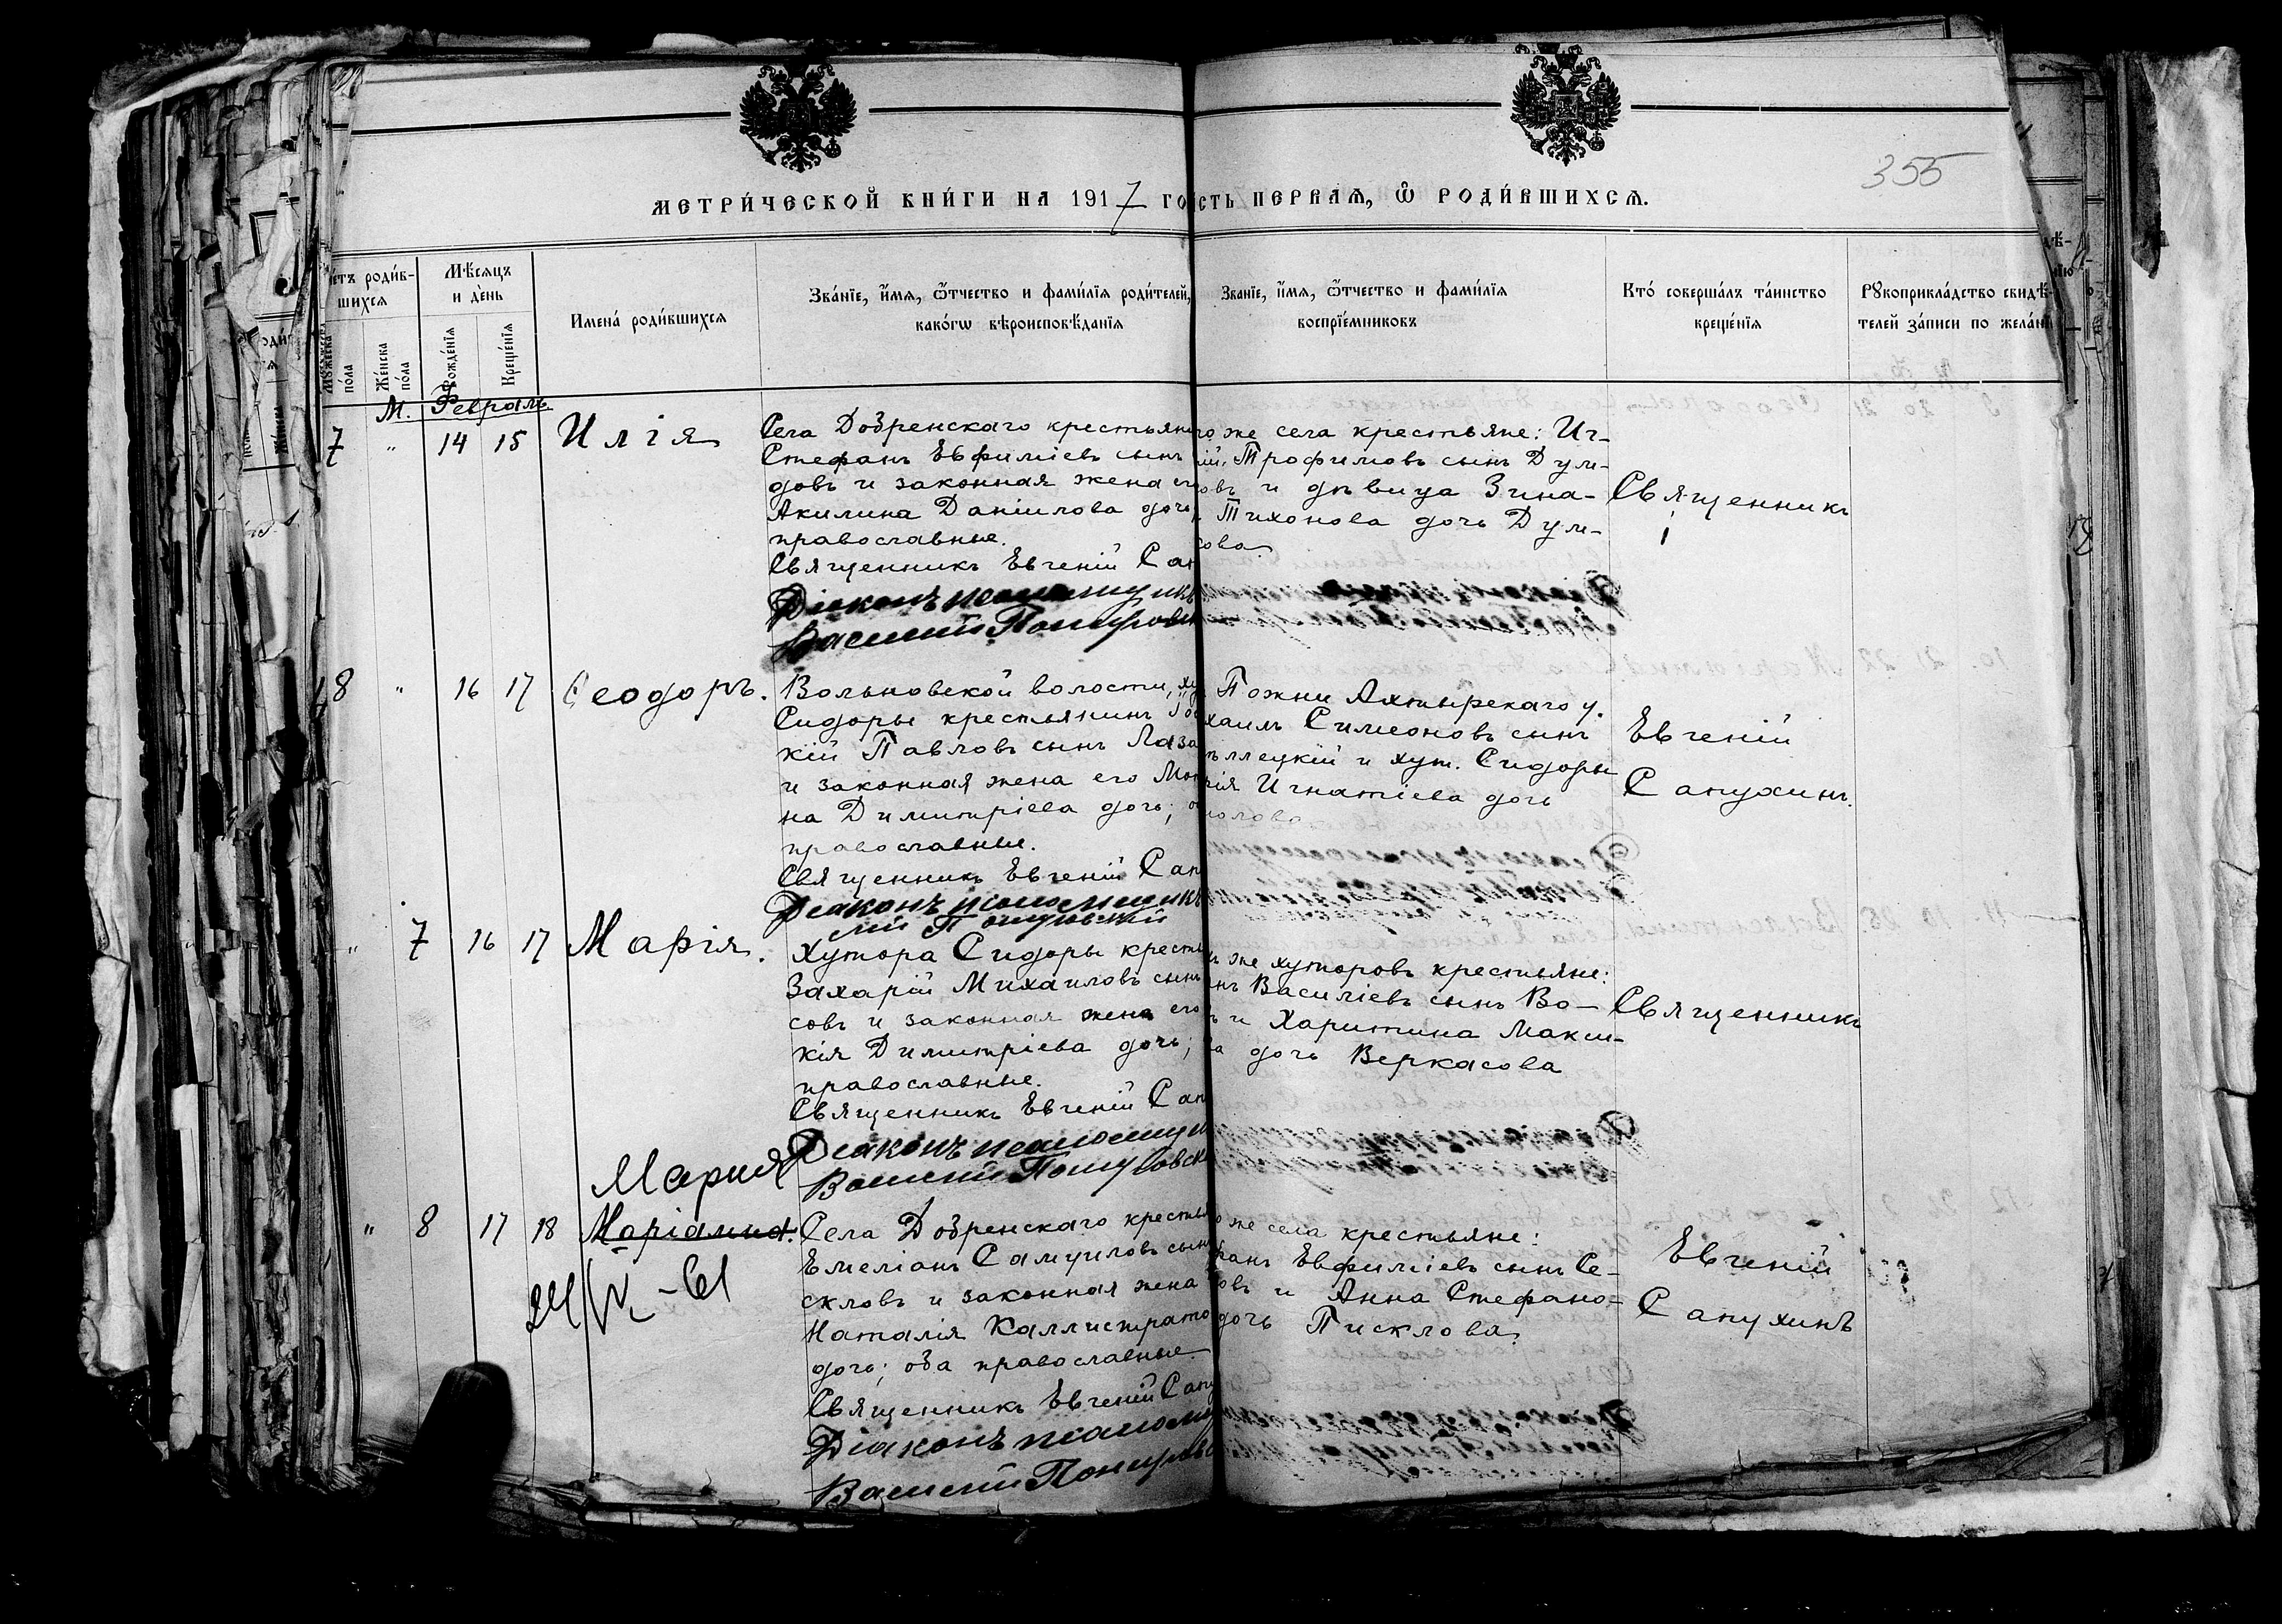 355
МЕТРИ́ЧЕСКОЙ КНИ́ГИ НА 1917 ГО
СТЬ ПЕРВАѦ, Ѿ РОДИ́ВШИХСѦ.
е́тъ роди́в-
шихсѧ
Му́жеска по́ла
Же́нска по́ла
Мѣ́сѧцъ
и де́нь
Рожде́нїѧ
Креще́нїѧ
Имена́ роди́вшихсѧ
Зва́нїе, и́мѧ, ѻ́тчество и фами́лїѧ роди́телей,
како́гѡ вѣроисповѣ́данїѧ
Зва́нїе, и́мѧ, ѻ́тчество и фами́лїѧ
воспрїе́мниковъ
Кто́ соверша́лъ та́инство
креще́нїѧ
Рꙋкоприкла́дство свидѣ́-
телей за́писи по жела́нї
М. Февраль
7 " 14 15 Илія
Села Добренскаго крестьянин
Стефанъ Евфиміевъ сынъ
довъ и законная жена его
Акилина Даніилова дочь,
православные.
Священникъ Евгеній Сап
Діаконъ псаломщикъ
Василій
го же села крестьяне: Иг-
Трофимовъ сынъ Дум-
овъ и дѣвица Зина-
Тихонова дочь Дум-
сова
Священникъ
8 " 16 17 Ѳеодоръ.
Вольновской волости, ху
Сидоры крестьянинъ
кій Павловъ сынъ Лаза
и законная жена его
на Димитріева дочь; о
православные.
Священникъ Евгеній Сап
Діаконъ псаломщикъ
Пожни Ахтырскаго у.
хаилъ Симеоновъ сынъ
и хут. Сидоры
рія Игнатіева дочь
Евгеній
Сапухинъ.
" 7 16 17 Марія.
Хутора Сидоры кресть
Захарій Михаиловъ сынъ
совъ и законная жена его
кія Димитріева дочь;
православные.
Священникъ Евгеній Сап
Діаконъ псаломщи
Василій
же хуторовъ крестьяне:
Василіевъ сынъ Во-
и Харитина Макси-
ва дочь Веркасова
Священникъ
Мария
" 8 17 18 Маріамна.
Села Добренскаго кресть
Емеліанъ Самуиловъ сынъ
скловъ и законная жена
Наталія Каллистрато
дочь; оба православные
Священникъ Евгеній Сапу
Діаконъ псаломщ
Василій
о же села крестьяне:
фанъ Евфиміевъ сынъ Се-
овъ и Анна Стефано-
дочь Писклова
Евгеній
Сапухинъ